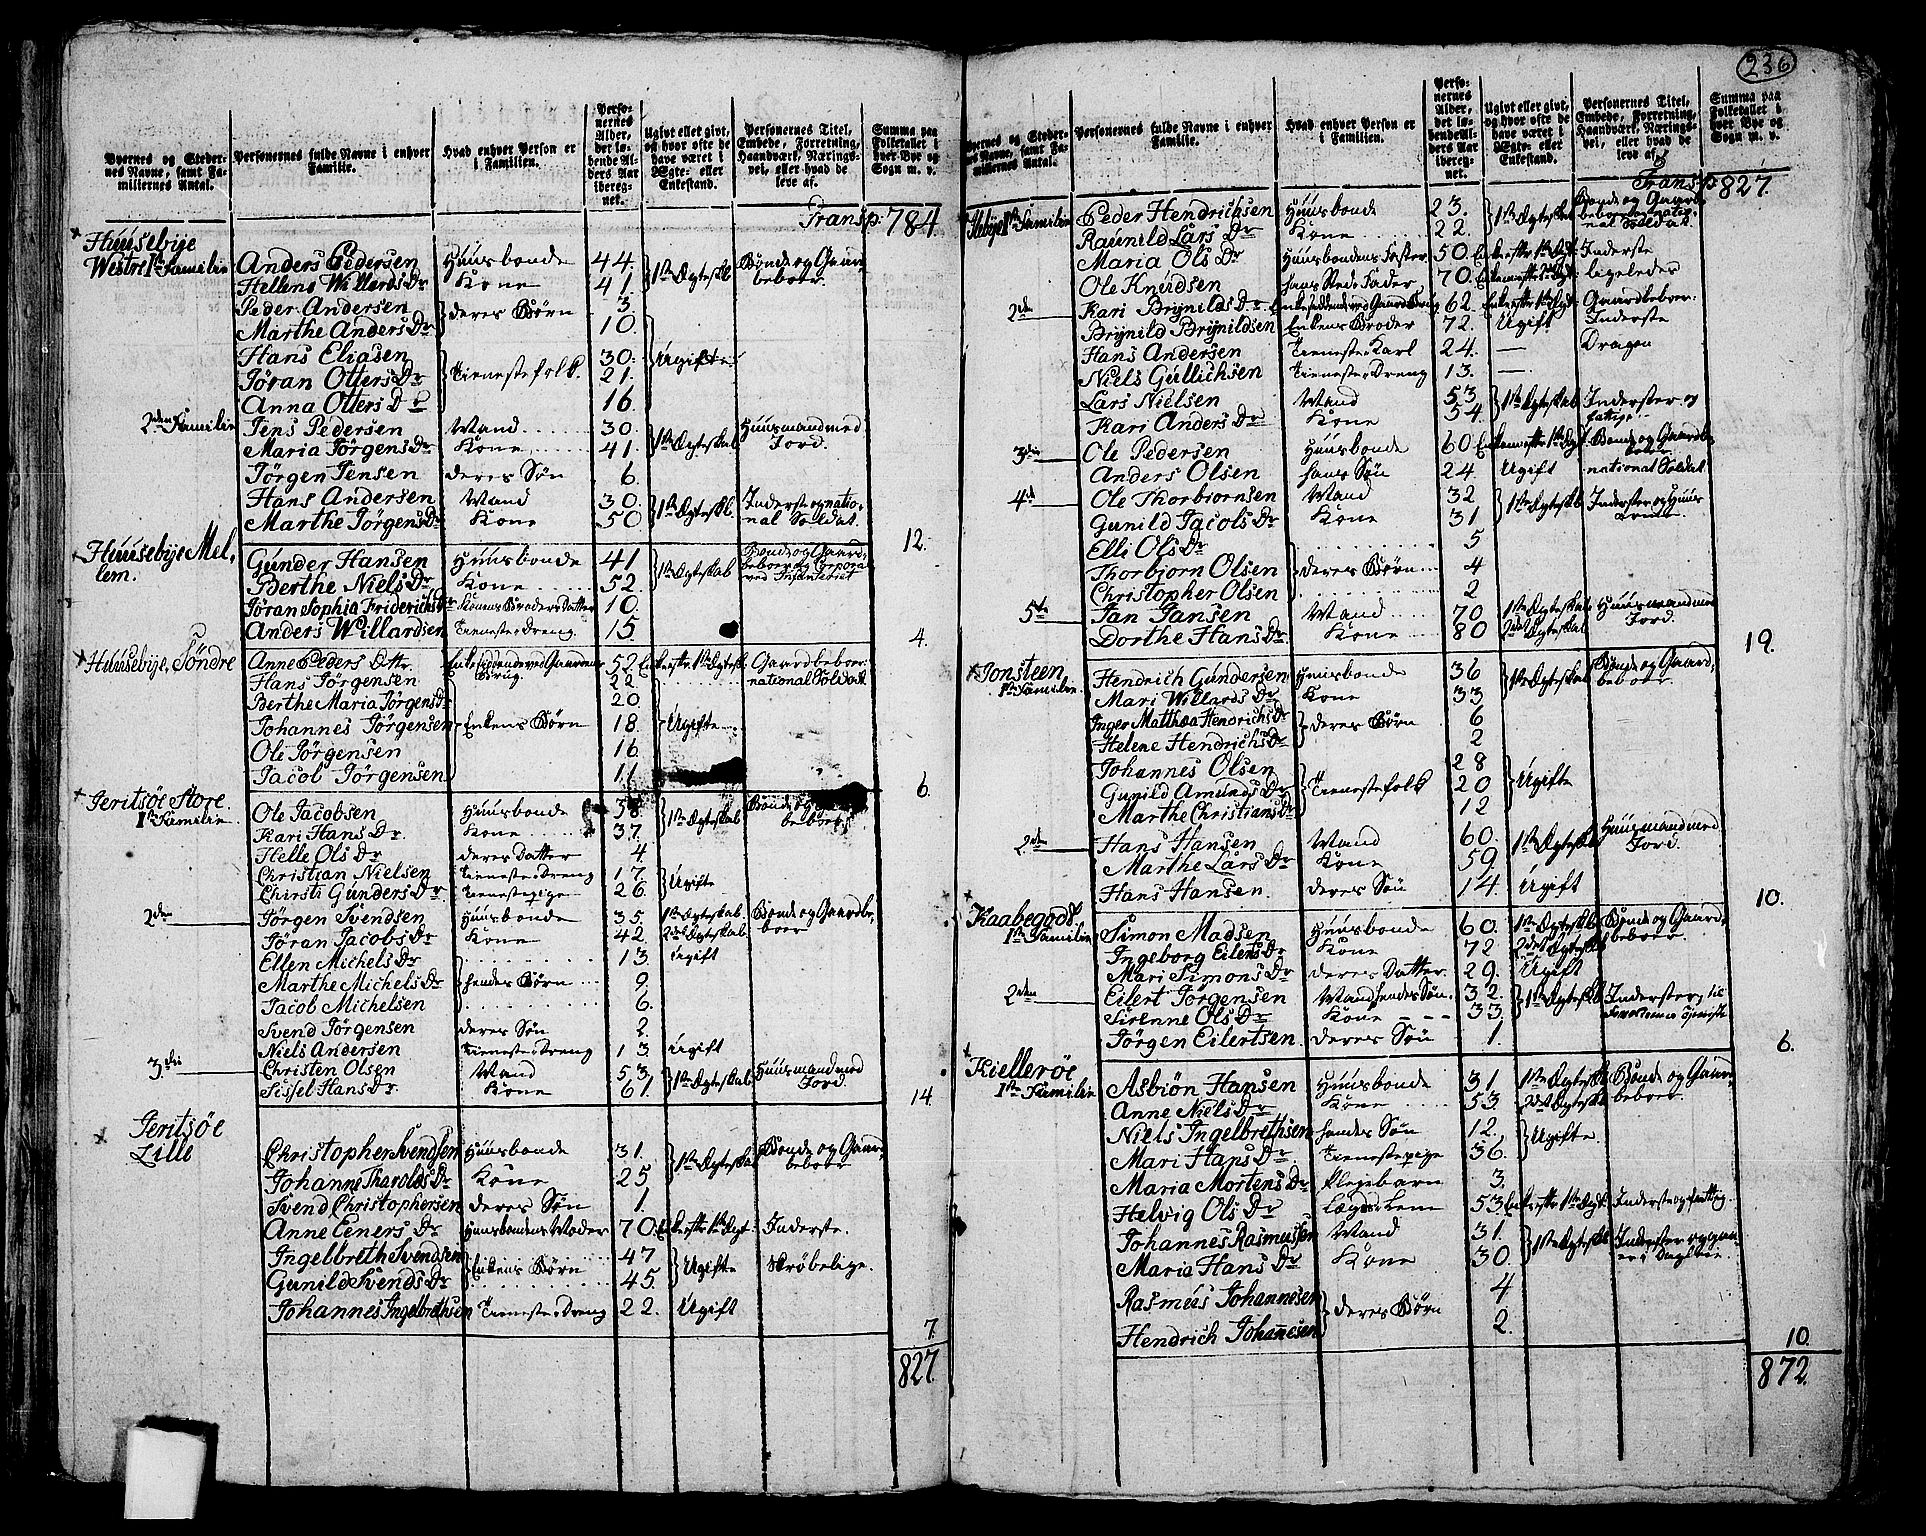 236
Byernes og Steder- nes Navne, samt Fa- miliernes Antal. | Personernes fulde Navne i enhver Familie. | Hvad enhver Person er i Familien. | Perso- nernes Alder, det lø- bende Al- ders Aar iberegnet. | Ugivt eller givt, og hvor ofte de have været i Ægte- eller Enkestand. | Personernes Titel, Embede, Forretning, Haandværk, Nærings- vei, eller hvad de leve af. | Summa paa Folketallet i hver Bye og Sogn m. v.
Transp 784
Huusebÿe Westre 1ste Familie Anders Pedersen Huusbonde 44 1ste Ægteskb Bonde og Gaardbeboer
Hellene Willards Dr Kone 41
Peder Andersen deres Børn 3
Marthe Anders Dr 10
Hans Eliasen Tienestefolk 30 Ugifte
Jøran Otters Dr 21
Anna Otters Dr 16
2den Familie Jens Pedersen Mand 30 1ste Ægteskab Huusmand med Jord
Maria Jørgens Dr Kone 41
Jørgen Jensen deres Søn 6
Hans Andersen Mand 30 1ste Ægteskb Inderste og national Soldat
Marthe Jørgens Dr Kone 50
12
Huusebÿe Mellem Gunder Hansen Huusbonde 41 1ste Ægteskab Bonde og Gaardbeboer og Corporal ved Infanteriet
Berthe Niels Dr Kone 52
Jøran Sophia Friderichs Dr Konens Broders Datter 10
Anders Willardsen Tieneste Dreng 15
4
Huusebÿe, Søndre Anne Peders Dttr Enke siddende ved Gaardens Brug 52 Enke efter 1ste Ægtesk Gaardbeboer
Hans Jørgensen 22 national Soldat
Berthe Maria Jørgens Dr 20
Johannes Jørgensen Enkens Børn 18 Ugifte
Ole Jørgensen 16
Jacob Jørgensen 11
6
Jeritsøe Store 1ste Familie Ole Jacobsen Huusbonde 38 1ste Ægteskab Bonde og Gaardbeboer
Kari Hans Dr Kone 37
Helle Ols Dr deres Datter 4
Christian Nielsen Tieneste Dreng 17 Ugifte
Chirsti Gunders Dr Tienestepige 26
2den Jørgen Svendsen Huusbonde 35 1ste Ægteskab Bonde og Gaardbeboer
Jøran Jacobs Dr Kone 42 2det Ægteskab
Ellen Michels Dr 13 Ugift
Marthe Michels Dr hendes Børn 9
Jacob Michelsen 6
Svend Jørgensen deres Søn 2
Niels Andersen Tieneste Dreng 13 Ugift
3die Christen Olsen Mand 53 1ste Ægteskab Huusmand med Jord
Sissel Hans Dr Kone 61
14
Jeritsøe Lille Christopher Svendsen Huusbonde 31 1ste Ægteskab Bonde og Gaardbeboer
Johanne Tharalds Dr Kone 25
Svend Christophersen deres Søn 1
Anne Eeners Dr Huusbondens Moder 70 Enke efter 1ste Ægt Inderste
Ingelbreth Svendsen Enkens Børn 47 Ugifte Skrøbelige
Gunild Svends Dr 45
Johannes Ingelbrethsen Tieneste Dreng 22 Ugift
7
827
Byernes og Steder- nes Navne, samt Fa- miliernes Antal. | Personernes fulde Navne i enhver Familie. | Hvad enhver Person er i Familien. | Perso- nernes Alder, det lø- bende Al- ders Aar iberegnet. | Ugivt eller givt, og hvor ofte de have været i Ægte- eller Enkestand. | Personernes Titel, Embede, Forretning, Haandværk, Nærings- vei, eller hvad de leve af. | Summa paa Folketallet i hver Bye og Sogn m. v.
Transp 827
1ste Familie Peder Hendrichsen Huusbonde 23 1ste Ægteskab Bonde og Gaardbeboer national Soldat
Raunild Lars Dr Kone 22
Maria Ols Dr Huusbondens 50 Enke efter 1ste Ægt Inderste
Ole Knudsen hans Sted Fader 70 ligeledes
2den Kari Brynilds Dr Enke siddende ved Gaards Brug 62 Enke efter 1ste Ægt Gaardbeboer
Brynild Brynildsen Enkens Broder 72 Ugift Inderste
Hans Andersen Tieneste Karl 24 — Dragon
Niels Gullichsen Tieneste Dreng 13 —
Lars Nielsen Mand 53 1ste Ægteskab Inderster og fattige
Kari Anders Dr Kone 54
3die Ole Pedersen Huusbonde 60 Enkem efter 1ste Ægt Bonde og Gaardbeboer
Anders Olsen hans Søn 24 Ugift national Soldat
4de Ole Thorbiornsen Mand 32 1ste Ægteskb Inderster og
Gunild Jacols Dr Kone 31
Elli Ols Dr 5
Thorbiorn Olsen deres Børn 4
Christopher Olsen 2
5te Jan Jansen Mand 70 1ste Ægteskab Huusmand med Jord
Dorthe Hans Dr Kone 80 2det Ægteskab
19
Jonsteen 1ste Familie Hendrich Gundersen Huusbonde 36 1ste Ægteskab Bonde og Gaardbeboer
Mari Willards Dr Kone 33
Inger Matthea Hendrichs Dr deres Børn 6
Helene Hendrichs Dr 2
Johannes Olsen 28
Gunild Amunds Dr Tienestefolk 20 Ugifte
Marthe Christians Dr 12
2den Hans Hansen Mand 60 1ste Ægteskb Huusmand med Jord
Marthe Lars Dr Kone 59
Hans Hansen deres Søn 14 Ugift
10
Kaabegods 1ste Familie Simon Madsen Huusbonde 60 1ste Ægteskb Bonde og Gaardbeboer
Ingeborg Eilers Dr Kone 72 2det Ægteskab
Mari Simons Dr deres Datter 29 Ugift
2den Eilert Jørgensen Mand hendes Søn 32 1ste Ægteskb Inderster, til
Sirenne Ols Dr Kone 33
Jørgen Eilertsen deres Søn 1
6
Kiellerøe 1ste Familie Asbiön Hansen Huusbonde 31 1ste Ægteskab Bonde og Gaardbeboer
Anne Niels Dr Kone 53 2det Ægteskb
Niels Ingelbrethsen hendes Søn 12 Ugifte
Mari Hans Dr Tienestepige 36
Maria Mortens Dr Plejebarn 3
Helvig Ols Dr Lægds Lem 53 Enke efter 1ste Ægt Inderste og fattig
Johannes Rasmussen Mand 31 1ste Ægteskb Inderster og
Maria Hans Dr Kone 30
Rasmus Johannesen deres Børn 4
Hendrich Johanesen 2
10
872